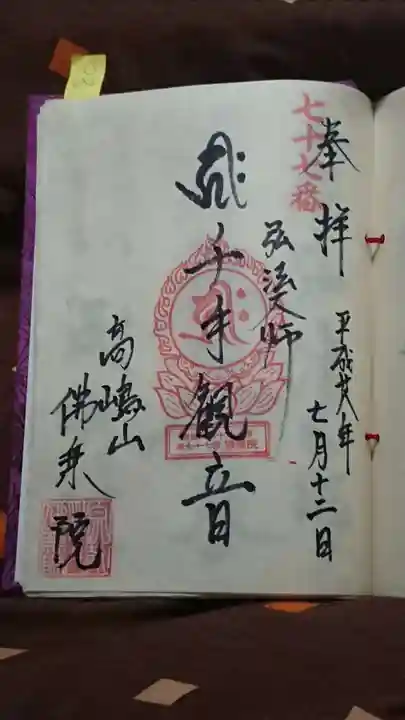 七十七番
奉拝
平成廿八年
七月十二日
弘法大師
千手観音
高嶋山
佛乗院